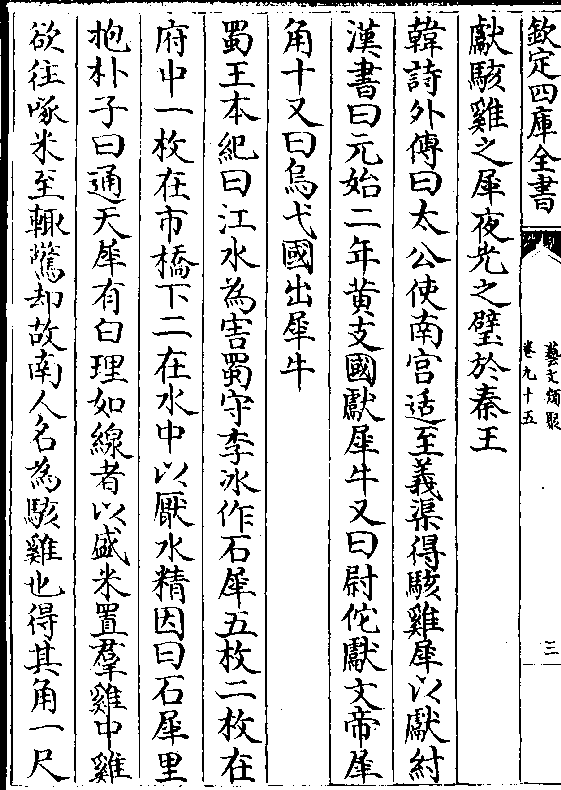 欽定四庫全書
藝文類聚
卷九十五
三
獻駭雞之犀夜光之璧於秦王
韓詩外傳曰太公使南宫适至義渠得駭雞犀以獻紂
漢書曰元始二年黄支國獻犀牛又曰尉佗獻文帝犀
角十又曰烏弋國出犀牛
蜀王本紀曰江水為害蜀守李冰作石犀五枚二枚在
府中一枚在市橋下二在水中以厭水精因曰石犀里
抱朴子曰通天犀有白理如線者以盛米置羣雞中雞
欲往啄米至輒驚却故南人名為駭雞也得其角一尺